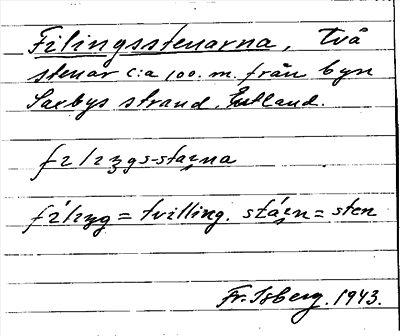 Filingsstenarna, två
stenar c:a 100. m. från byn
Saxbys strand, Estland.
fɪlɪʒgs-staɪna
fɪ́lɪʒg = tvilling. stáɪn = sten
Fr. Isberg. 1943.